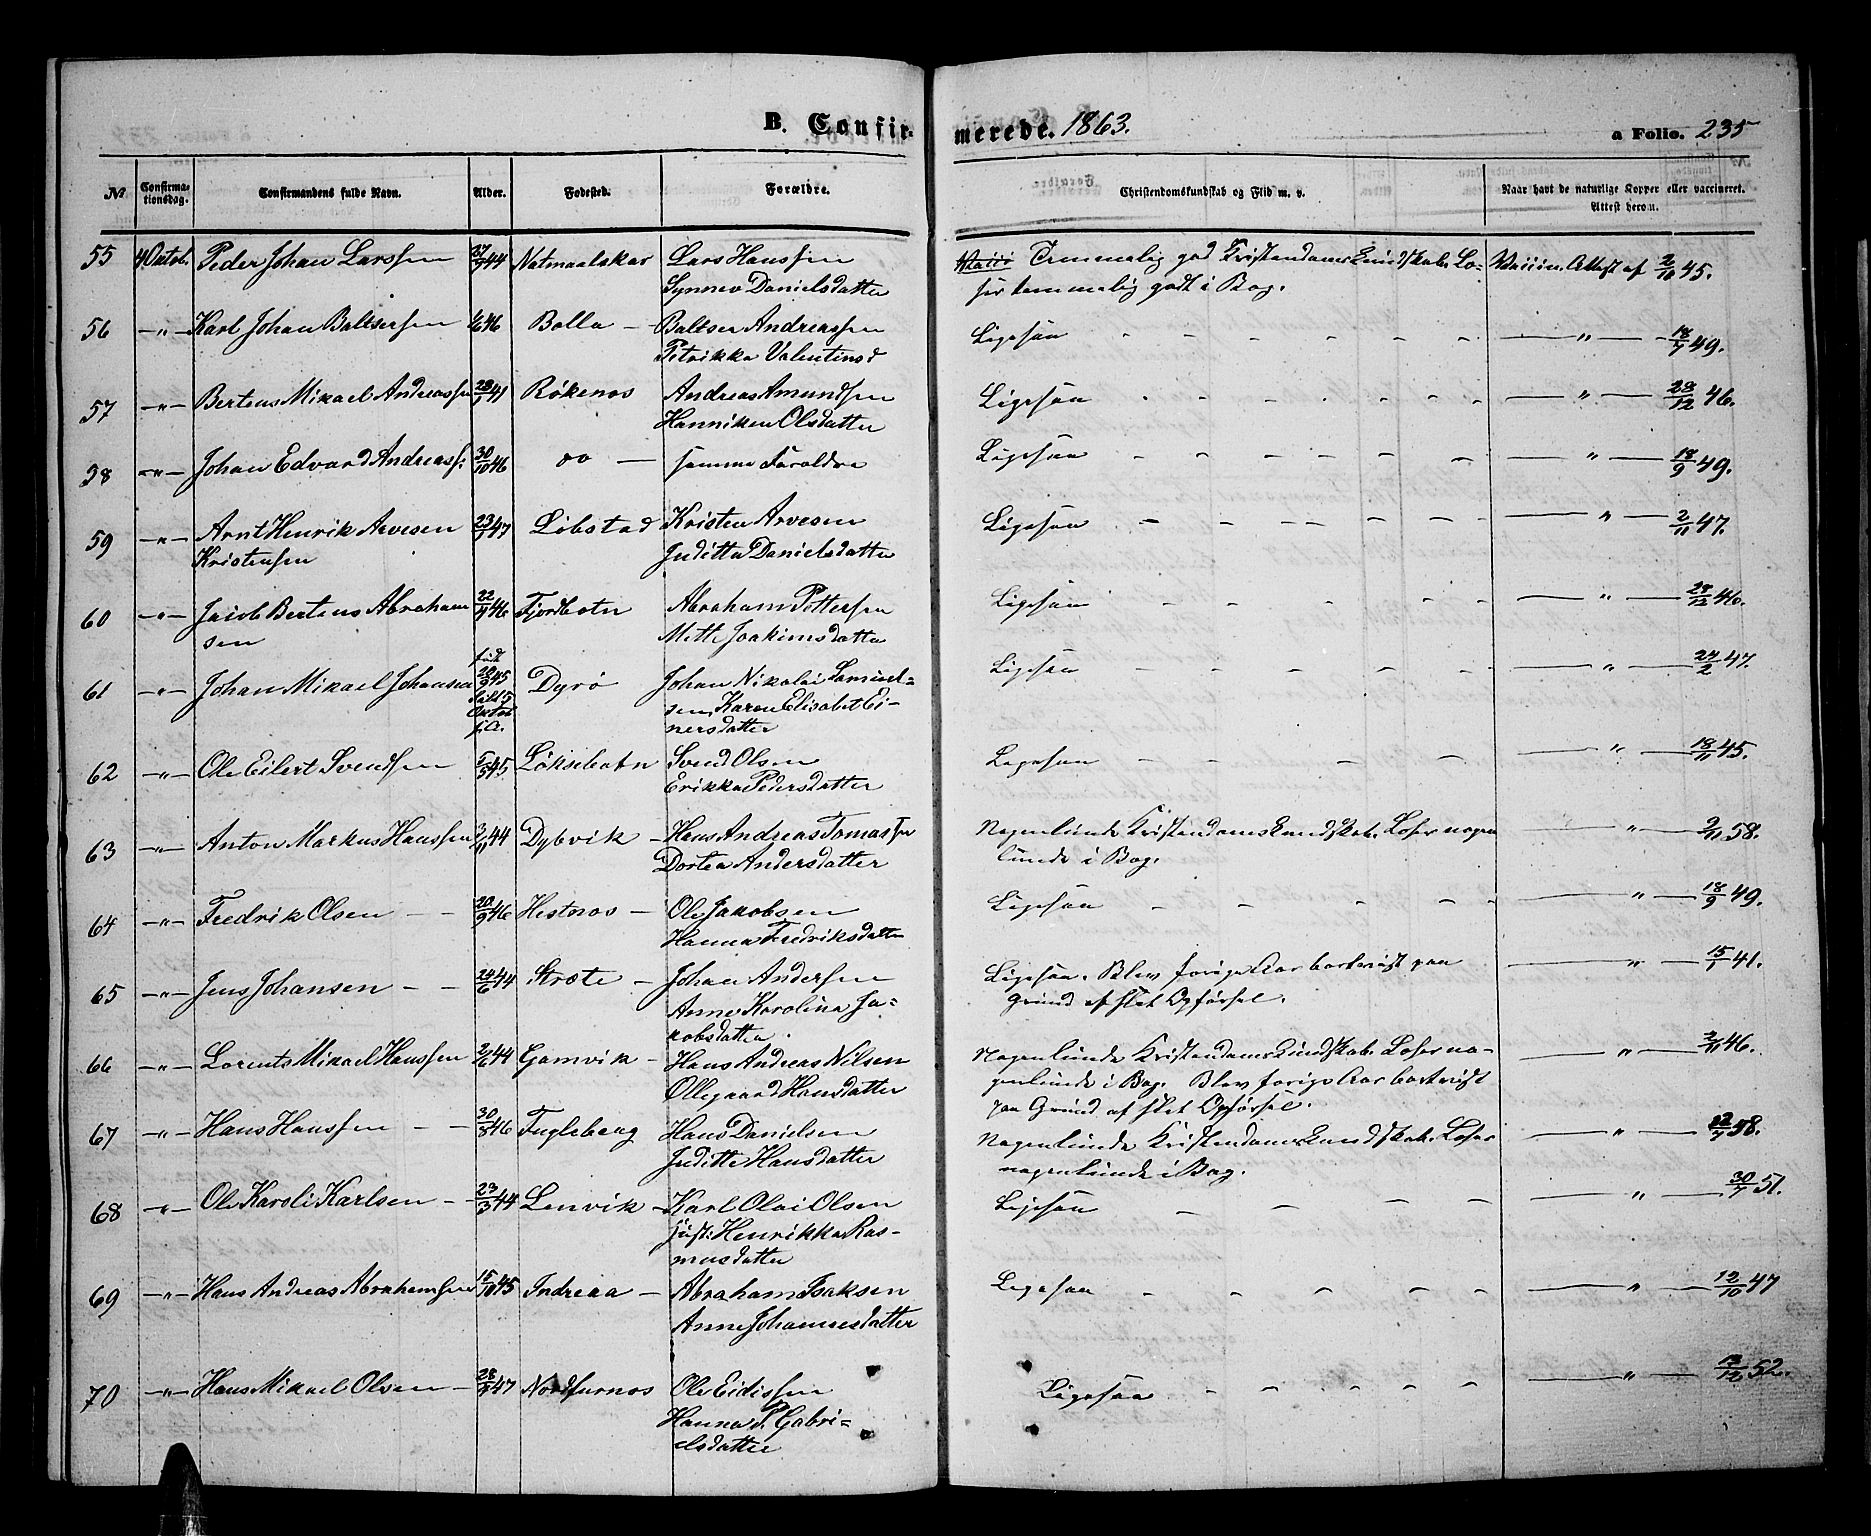 B. Confirmerede. 1863.
a Folio. 235
No Confirmationsdag. Confirmandens fulde Navn. Alder. Fødested. Forældre. Christendomskundskab og Flid m. v. Naar havt de naturlige Kopper eller vaccineret. Attest herom.
55 4 Octob. Peder Johan Larssen 27/9 44 Natmaalskar Lars Hanssen Temmelig god Kristendomskundskab. Læ- Vaccin. Attest af 2/10 45.
Synnev Danielsdatter ser temmelig godt i Bog.
56 —"— Karl Johan Baltsersen 46 Bolla — Baltser Andreassen Ligesaa - - - - - - —"— 18/7 49.
Petrikka Valentinsd
57 —"— Bertius Mikael Andreassen 41 Røkenes Andreas Amundsen Ligesaa - - - - - - —"— 28/12 46.
Hanniken Olsdatter
58 —"— Johan Edvard Andreass. 30/10 46 do — samme Forældre Ligesaa - - - - - - —"— 18/9 49.
59 —"— Arnt Henrik Arvesen 23/ 47 Løbstad Kristen Arvesen Ligesaa - - - - - - —"— 2/11 47.
Kristensen Juditta Danielsdatter
60 —"— Jacob Bertius Abraham 22/ 46 Fjordbotn Abraham Pettersen Ligesaa - - - - - - —"— 28/12 46.
sen Mette Joakimsdatter
61 —"— Johan Mikael Johansen født 28/9 45 Dyrø Johan Nikolai Samuel= Ligesaa - - - - - —"— 24/2 47.
sen, Karen Elisabet Ei-
nersdatter
62 —"— Ole Eilert Svendsen 5/5 45 Løksebotn Svend Olsen Ligesaa - - - - - —"— 18/11 45.
Erikka Pedersdatter
63 —"— Anton Markus Hanssen 2/11 44 Dybvik — Hans Andreas Tomassen Nogenlunde Kristendomskundskab. Læser nogen —"— 2/11 58.
Dortea Andersdatter lunde i Bog.
64 —"— Fredrik Olsen - - 20/9 46 Hestnes — Ole Jakobsen Ligesaa - - - - - —"— 18/9 49.
Hanna Fredriksdatter
65 —"— Jens Johansen - - 24/6 44 Stræte — Johan Andersen Ligesaa. Blev forige Aar bortvist paa —"— 15/1 41.
Anne Karolina Ja= Grund af slet Opførsel.
kobsdatter
66 —"— Lorents Mikael Hanssen 2/6 44 Gamvik — Hans Andreas Nilsen Nogenlunde Kristendomskundskab. Læser no- —"— 2/11 46.
Ollegaard Hansdatter genlunde i Bog. Blev forige Aar bortvist
paa Grund af slet Opførsel.
67 —"— Hans Hanssen - - 30/8 46 Fugleberg Hans Danielsen Nogenlunde Kristendomskundskab. Læser —"— 22/7 58.
Juditte Hansdatter nogenlunde i Bog.
68 —"— Ole Karoli Karlsen - 23/3 44 Lenvik — Karl Olai Olsen Ligesaa - - - - - —"— 30/7 51.
Just: Henrikka Ras-
musdatter
69 —"— Hans Andreas Abrahamsen 15/10 45 Indreaa — Abraham Isaksen Ligesaa - - - - - —"— 12/10 47
Anne Johannesdatter
70 —"— Hans Mikael Olsen - 28/ 47 Nordfurnes Ole Eidissen Ligesaa - - - - - —"— 13/12 52.
Hanna P. Gabri=
elsdatter